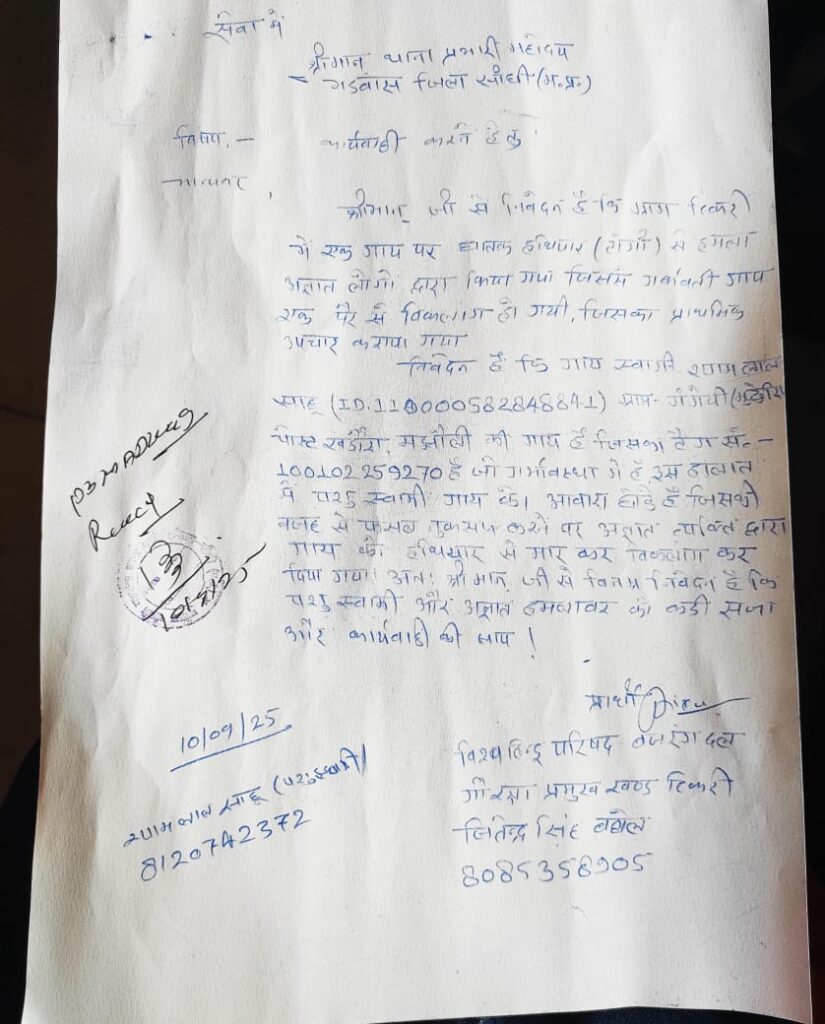 सेवा में
श्रीमान थाना प्रभारी महोदय
गडवास जिला सीधी (म.प्र.)
विषय :- कार्यवाही करने हेतु।
मान्यवर,
श्रीमान् जी से निवेदन है कि ग्राम टिकरी
में एक गाय पर घातक हथियार (टांगी) से हमला
अज्ञात लोगो द्वारा किया गया जिसमें गर्भवती गाय
एक पैर से विकलांग हो गयी, जिसका प्राथमिक
उपचार कराया गया
निवेदन है कि गाय स्वामी श्याम लाल
साहू (ID.110000582848841) ग्राम-
पोस्ट खडौरा, मझौली की गाय है जिसका टैग सं.-
100102259270 है जो गर्भावस्था में है इस हालात
में पशु स्वामी गाय को आवारा छोडे है जिसकी
वजह से फसल नुकसान करने पर अज्ञात व्यक्ति द्वारा
गाय को हथियार से मार कर विकलांग कर
दिया गया। अतः श्रीमान् जी से विनम्र निवेदन है कि
पशु स्वामी और अज्ञात हमलावर को कडी सजा
और कार्यवाही की जाय!
प्रार्थी
विश्व हिन्दू परिषद बजरंग दल
गौ रक्षा प्रमुख खण्ड टिकरी
जितेन्द्र सिंह बघेल
8085358905
10/09/25
श्याम लाल साहू (पशु स्वामी)
8120742372